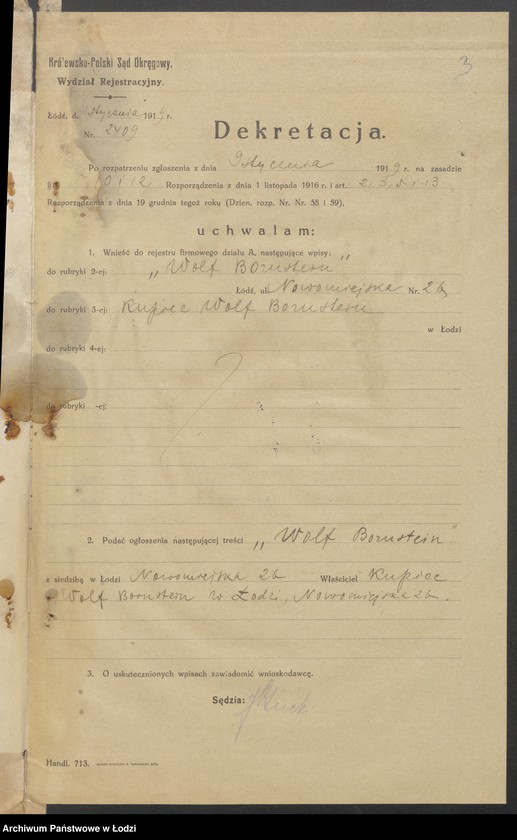 3
Królewsko-Polski Sąd Okręgowy.
Wydział Rejestracyjny.
Łódź, d. stycznia 1919 r.
Nr. 2409
Dekretacja.
Po rozpatrzeniu zgłoszenia z dnia 9 stycznia 1919 r. na zasadzie
10 i 12 Rozporządzenia z dnia 1 listopada 1916 r. i art. 2. 3. 5. i 13
Rozporządzenia z dnia 19 grudnia tegoż roku (Dzien. rozp. Nr. Nr. 58 i 59),
uchwalam:
1. Wnieść do rejestru firmowego działu A, następujące wpisy:
do rubryki 2-ej: „Wolf Bornstein"
Łódź, ul. Nowomiejska Nr. 26
do rubryki 3-ej: Kupiec Wolf Bornstein
w Łodzi
do rubryki 4-ej:
do rubryki -ej:
2. Podać ogłoszenia następującej treści „Wolf Bornstein"
z siedzibą w Łodzi Nowomiejska 26 Właściciel Kupiec
Wolf Bornstein w Łodzi, Nowomiejska 26.
3. O uskutecznionych wpisach zawiadomić wnioskodawcę.
Sędzia:
Handl. 713.
Archiwum Państwowe w Łodzi